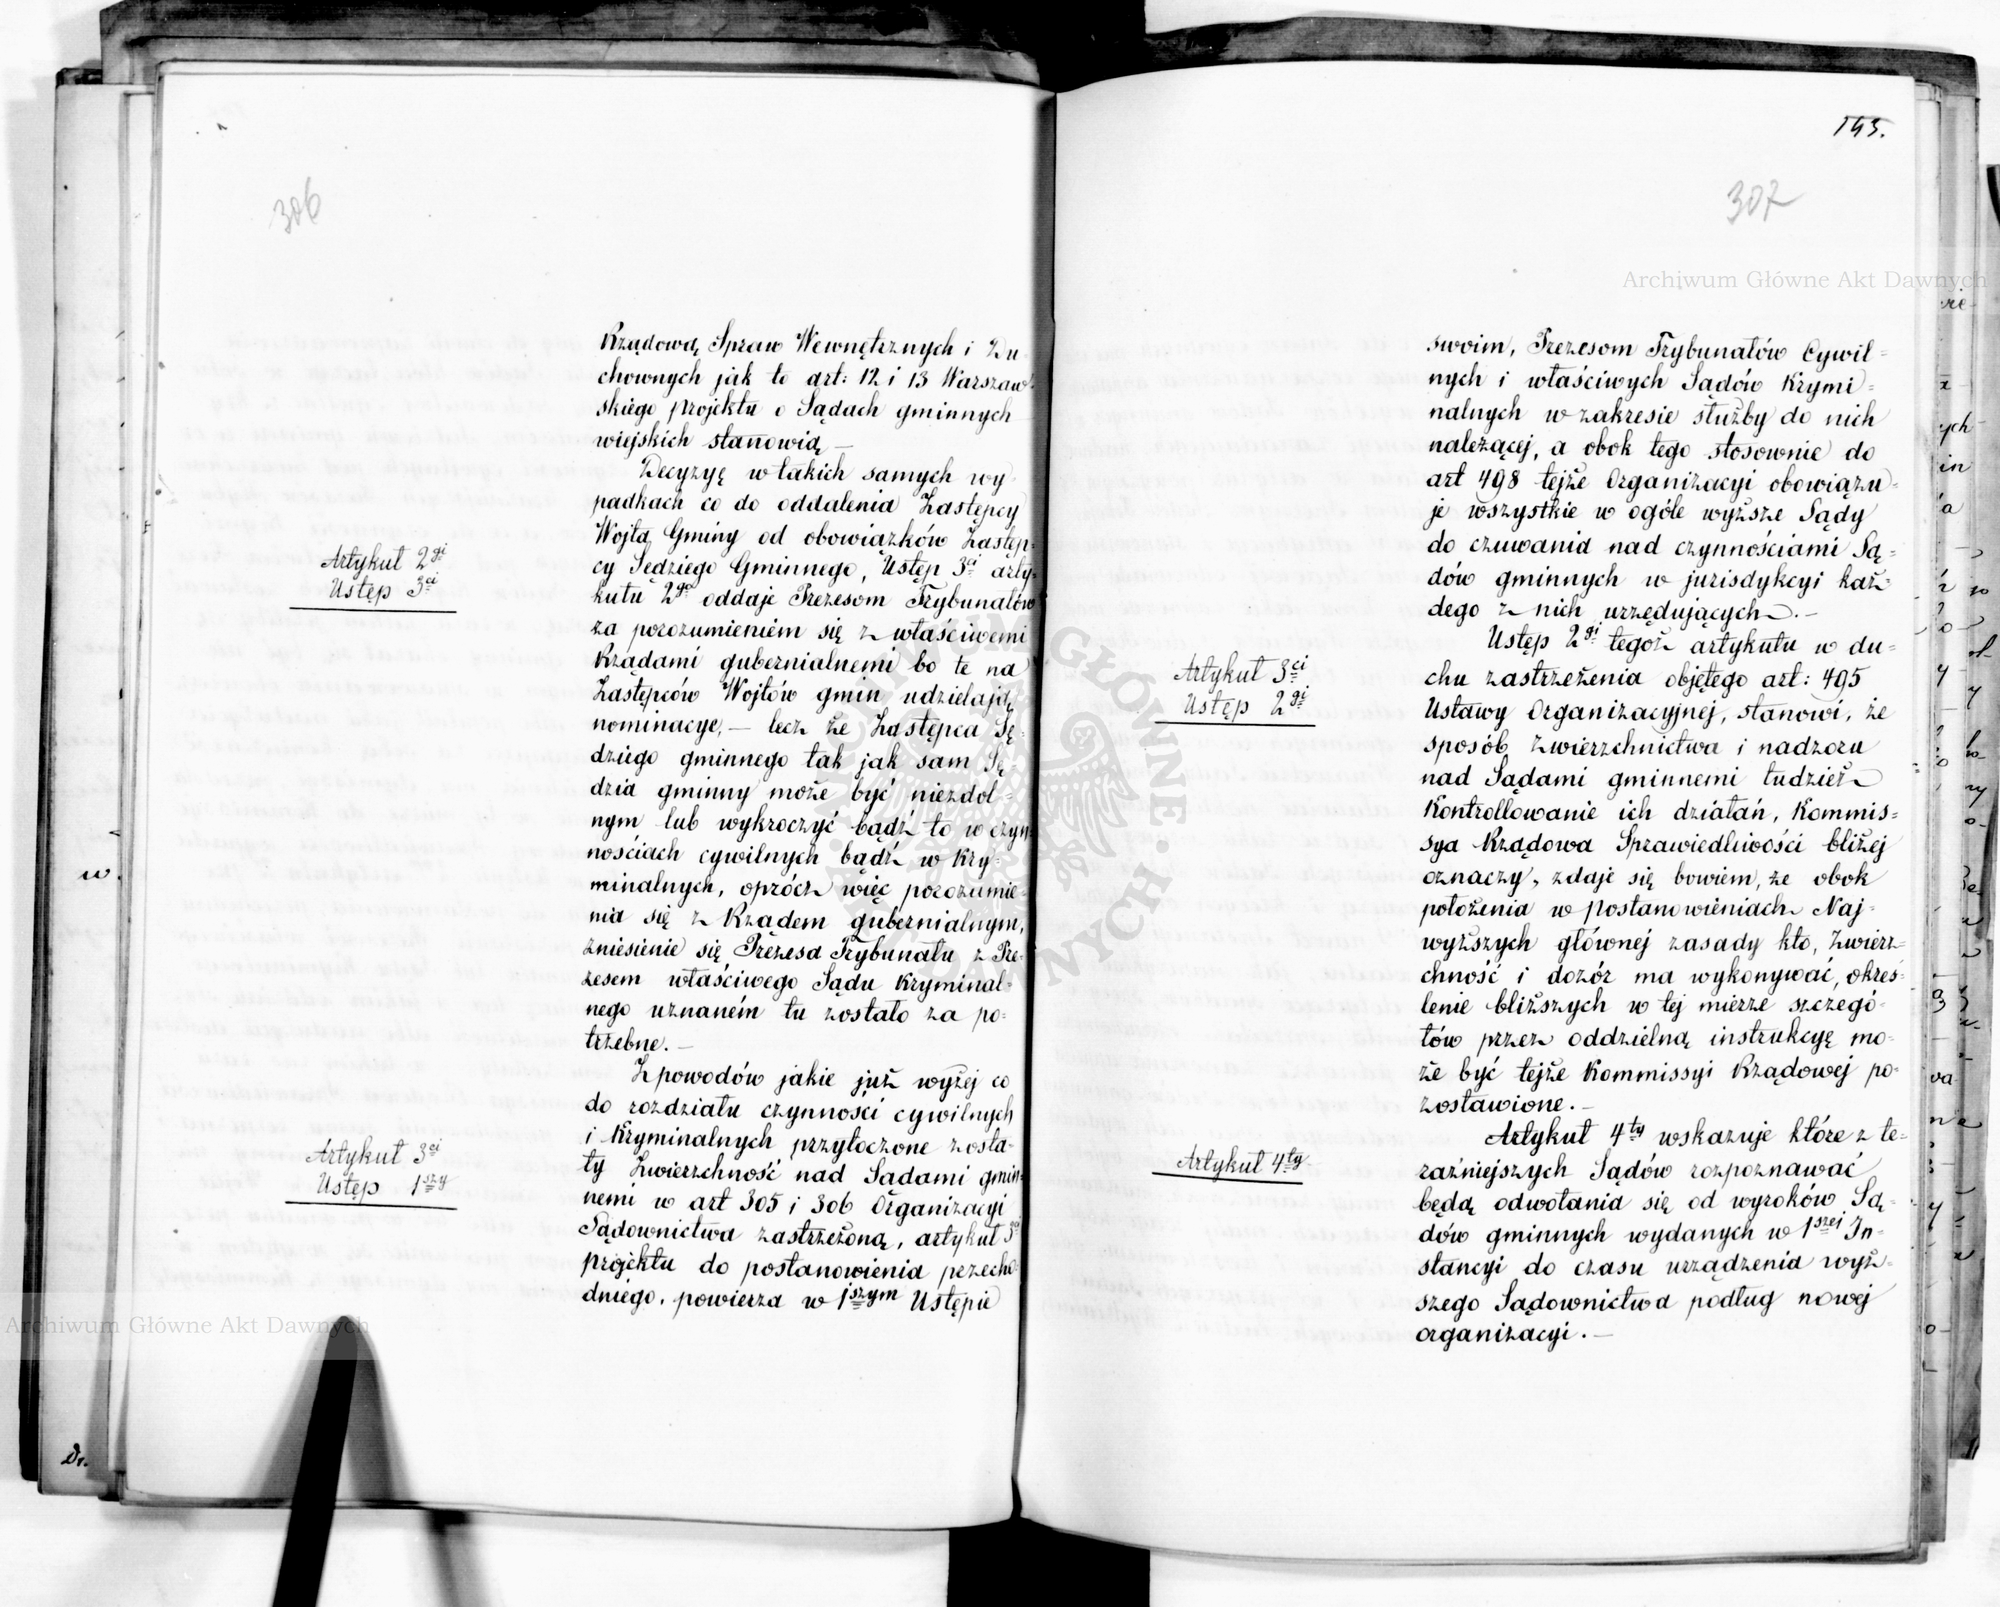 306
Rządową Spraw Wewnętrznych i Du
chownych jak to art: 12 i 13 Warszaw-
skiego projektu o Sądach gminnych
wiejskich stanowią —
Decyzyę w takich samych wy-
padkach co do oddalenia Zastępcy
Wojta Gminy od obowiązków Zastęp-
cy Sędziego Gminnego, Ustęp 3ci arty-
kułu 2go oddaje Prezesom Trybunałów
za porozumieniem się z właściwemi
Rządami gubernialnemi bo te na
Zastępców Wojtów gmin udzielają
nominacye, — lecz że Zastępca Sę-
dziego gminnego tak jak sam Sę-
dzia gminny może być niezdol-
nym lub wykroczyć bądź to w czyn-
nościach cywilnych bądź w Kry-
minalnych, oprócz więc porozumie-
nia się z Rządem gubernialnym,
zniesienie się Prezesa Trybunału z Pre-
zesem właściwego Sądu Kryminal-
nego uznaném tu zostało za po-
trzebne. —
Artykuł 2gi
Ustęp 3ci
Z powodów jakie już wyżej co
do rozdziału czynności cywilnych
i Kryminalnych przytoczone zosta-
ły Zwierzchność nad Sądami gmin-
nemi w art 305 i 306 Organizacyi
Sądownictwa zastrzeżoną, artykuł 3ci
projektu do postanowienia przecho-
dniego, powierza w 1szym Ustępie
Artykuł 3ci
Ustęp 1szy
Archiwum Główne Akt Dawnych
193.
307
Archiwum Główne Akt Dawnych
swoim, Prezesom Trybunałów Cywil-
nych i właściwych Sądów Krymi-
nalnych w zakresie służby do nich
należącej, a obok tego stosownie do
art 498 tejże Organizacyi obowiązu-
je wszystkie w ogóle wyższe Sądy
do czuwania nad czynnościami Są-
dów gminnych w jurisdykcyi każ-
dego z nich urzędujących. —
Ustęp 2gi tegoż artykułu w du-
chu zastrzeżenia objętego art: 495
Ustawy Organizacyjnej, stanowi, że
sposób zwierzchnictwa i nadzoru
nad Sądami gminnemi tudzież
Kontrollowanie ich działań, Kommis-
sya Rządowa Sprawiedliwości bliżej
oznaczy, zdaje się bowiem, że obok
położenia w Postanowieniach Naj-
wyższych głównej zasady kto, Zwierz-
chność i dozór ma wykonywać, okreś-
lenie bliższych w tej mierze szczegó-
łów przez oddzielną instrukcyę mo-
że być tejże Kommissyi Rządowej po-
zostawione. —
Artykuł 3ci
Ustęp 2gi
Artykuł 4ty wskazuje które z te-
raźniejszych Sądów rozpoznawać
będą odwołania się od wyroków Są-
dów gminnych wydanych w 1szej In-
stancyi do czasu urządzenia wyż-
szego Sądownictwa podług nowej
organizacyi. —
Artykuł 4ty
ARCHIWUM GŁÓWNE AKT DAWNYCH